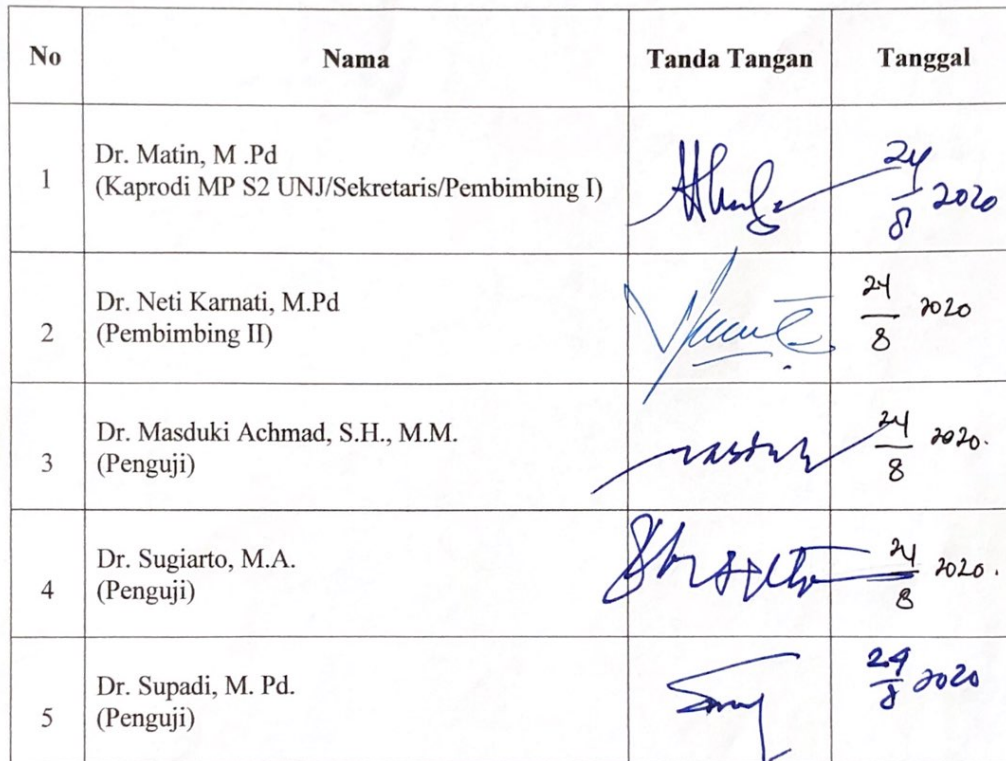 No Nama Tanda Tangan Tanggal
1 Dr. Matin, M .Pd
(Kaprodi MP S2 UNJ/Sekretaris/Pembimbing I)
24/8 2020
2 Dr. Neti Karnati, M.Pd
(Pembimbing II)
24/8 2020
3 Dr. Masduki Achmad, S.H., M.M.
(Penguji)
24/8 2020.
4 Dr. Sugiarto, M.A.
(Penguji)
24/8 2020.
5 Dr. Supadi, M. Pd.
(Penguji)
24/8 2020